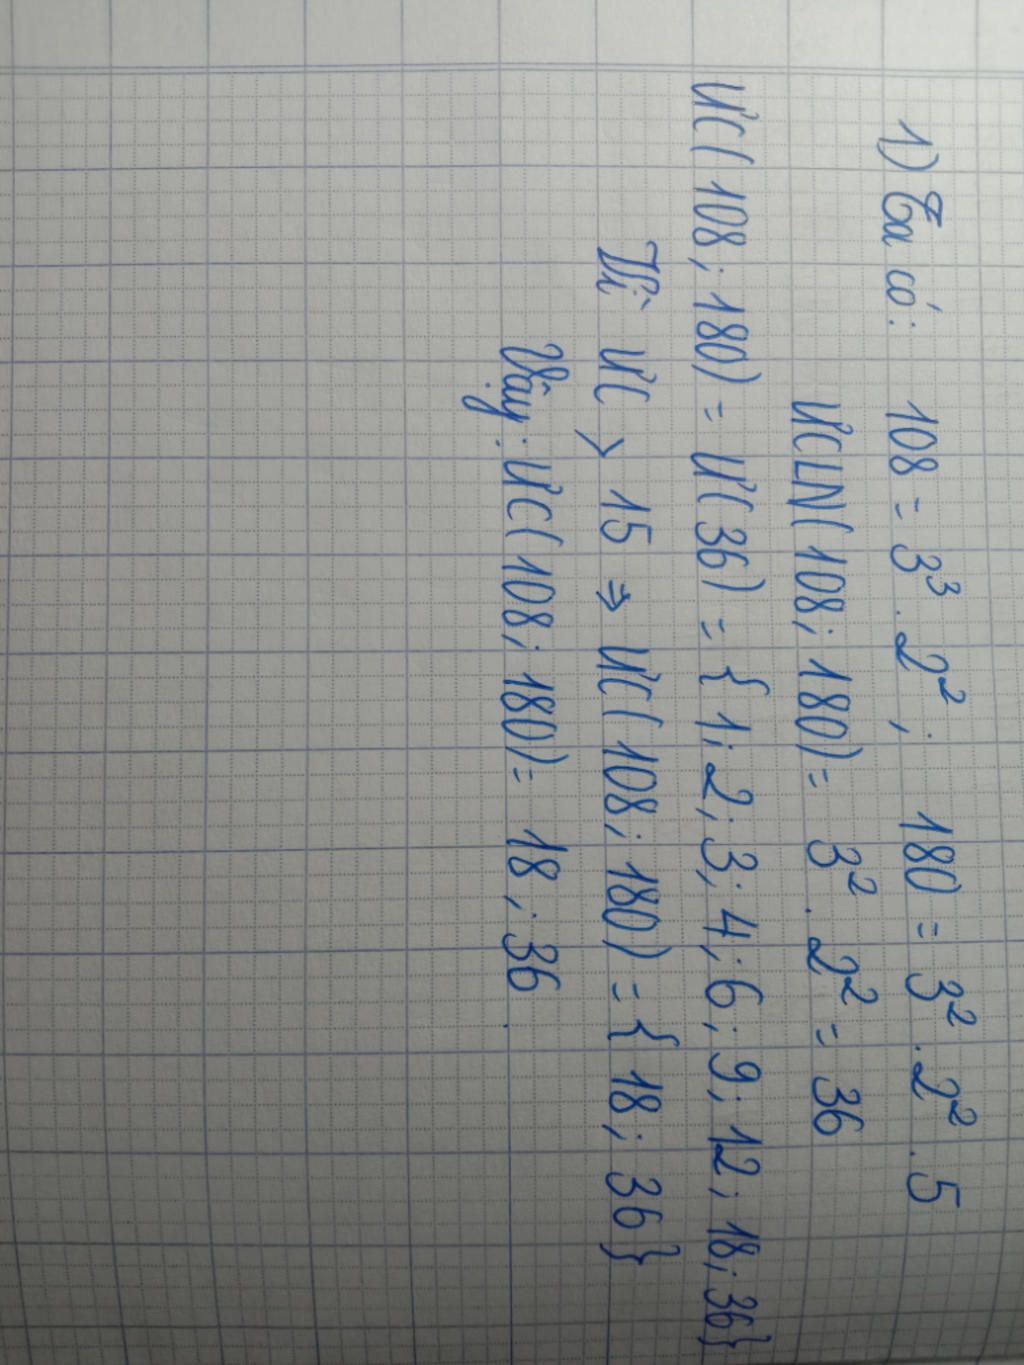 1) Ta có: 108 = 3³ . 2² ; 180 = 3² . 2² . 5
ƯCLN(108; 180) = 3² . 2² = 36
ƯC(108; 180) = Ư(36) = {1; 2; 3; 4; 6; 9; 12; 18; 36}
Vì ƯC > 15 ⇒ ƯC(108; 180) = {18; 36}
Vậy: ƯC(108; 180) = 18; 36.